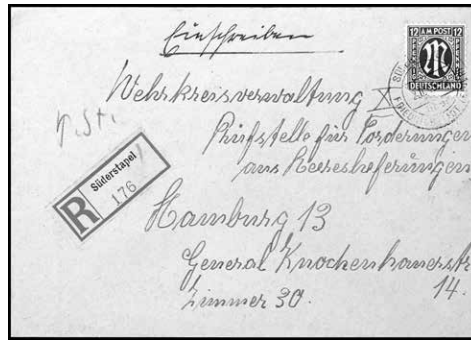 Einschreiben
12 AM POST 12
PFENNIG PFENNIG
M
DEUTSCHLAND
Wehrkreisverwaltung X
Prüfstelle für Forderungen
aus Heereslieferungen
R
Süderstapel
176
Hamburg 13
General Knochenhauerstr
14.
Zimmer 30.